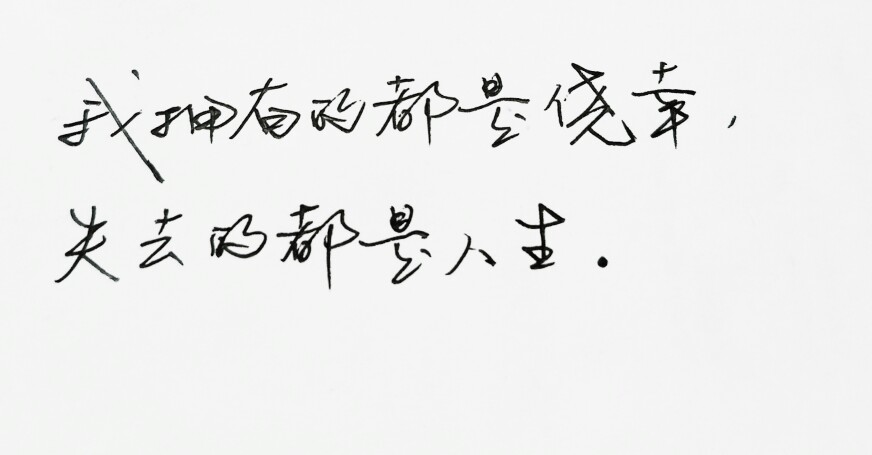 我拥有的都是侥幸，
失去的都是人生.